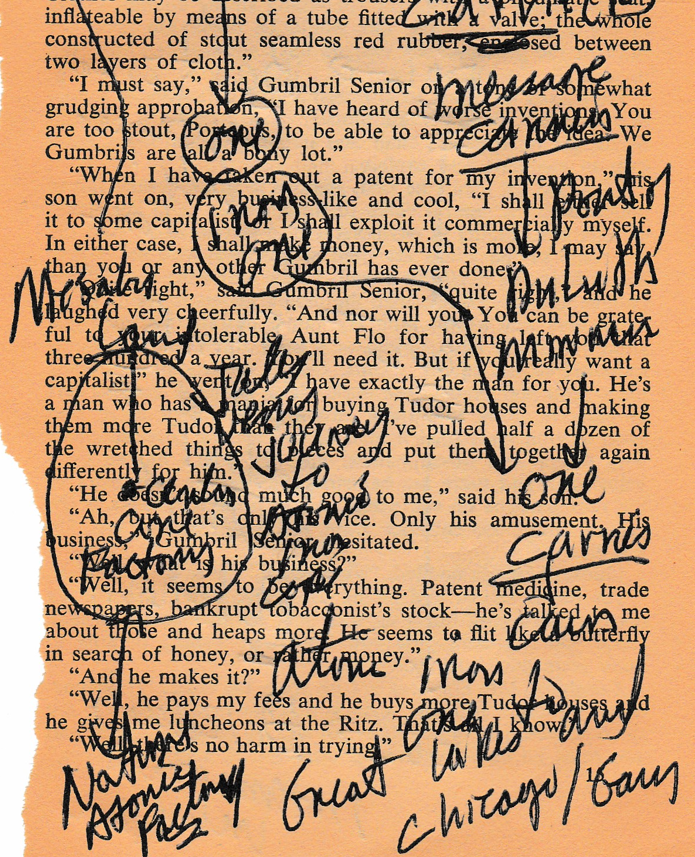 inflateable by means of a tube fitted with a valve; the whole
constructed of stout seamless red rubber, enclosed between
two layers of cloth.”
“I must say,” said Gumbril Senior on a tone of somewhat
grudging approbation, “I have heard of worse inventions. You
are too stout, Porteous, to be able to appreciate the idea. We
Gumbrils are all a bony lot.”
“When I have taken out a patent for my invention,” his
son went on, very business-like and cool, “I shall either sell
it to some capitalist, or I shall exploit it commercially myself.
In either case, I shall make money, which is more, I may say,
than you or any other Gumbril has ever done.”
“Quite right,” said Gumbril Senior, “quite right,” and he
laughed very cheerfully. “And nor will you. You can be grate-
ful to your intolerable Aunt Flo for having left you that
three hundred a year. You’ll need it. But if you really want a
capitalist,” he went on, “I have exactly the man for you. He’s
a man who has a mania for buying Tudor houses and making
them more Tudor than they are. I’ve pulled half a dozen of
the wretched things to pieces and put them together again
differently for him.”
“He doesn’t sound much good to me,” said his son.
“Ah, but that’s only his vice. Only his amusement. His
business,” Gumbril Senior hesitated.
“Well, what is his business?”
“Well, it seems to be everything. Patent medicine, trade
newspapers, bankrupt tobacconist’s stock—he’s talked to me
about those and heaps more. He seems to flit like a butterfly
in search of honey, or rather money.”
“And he makes it?”
“Well, he pays my fees and he buys more Tudor houses and
he gives me luncheons at the Ritz. That’s all I know.”
“Well, there’s no harm in trying.”
message
one
iron
one
Mesaby
Land
to
one
iron
ore
Factory
carries
atomic iron
one to
Great Lakes and
Chicago / Gary